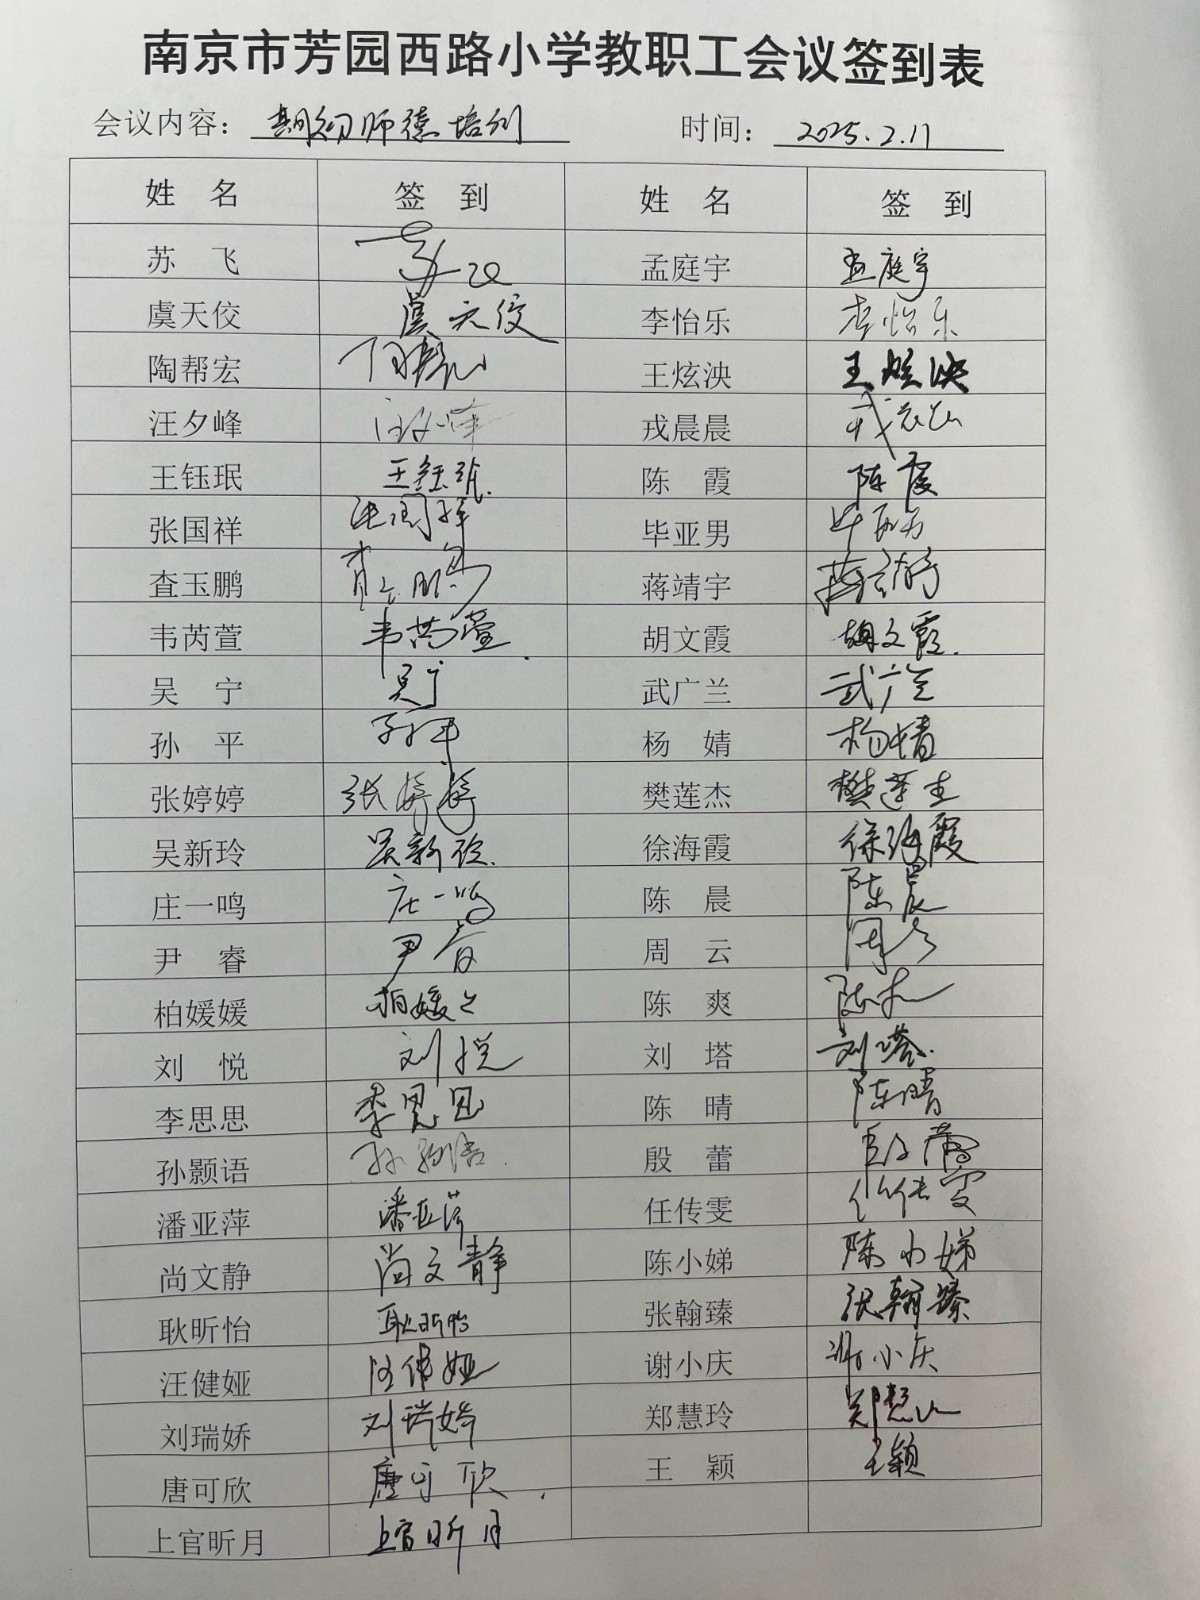 南京市芳园西路小学教职工会议签到表
会议内容：期初师德培训 时间：2025.2.17
姓 名 签 到 姓 名 签 到
苏 飞 苏飞 孟庭宇 孟庭宇
虞天佼 虞天佼 李怡乐 李怡乐
陶帮宏 陶帮宏 王炫泱 王炫泱
汪夕峰 汪夕峰 戎晨晨 戎晨晨
王钰珉 王钰珉. 陈 霞 陈霞
张国祥 张国祥 毕亚男 毕亚男
查玉鹏 查玉鹏 蒋靖宇 蒋靖宇
韦芮萱 韦芮萱. 胡文霞 胡文霞.
吴 宁 吴宁 武广兰 武广兰
孙 平 孙平 杨 婧 杨婧
张婷婷 张婷婷 樊莲杰 樊莲杰
吴新玲 吴新玲. 徐海霞 徐海霞
庄一鸣 庄一鸣 陈 晨 陈晨
尹 睿 尹睿 周 云 周云
柏媛媛 柏媛々 陈 爽 陈爽
刘 悦 刘悦 刘 塔 刘塔.
李思思 李思思 陈 晴 陈晴
孙颢语 孙颢语. 殷 蕾 殷蕾
潘亚萍 潘亚萍 任传雯 任传雯
尚文静 尚文静 陈小娣 陈小娣
耿昕怡 耿昕怡 张翰臻 张翰臻
汪健娅 汪健娅 谢小庆 谢小庆
刘瑞娇 刘瑞娇 郑慧玲 郑慧玲
唐可欣 唐可欣. 王 颖 王颖
上官昕月 上官昕月